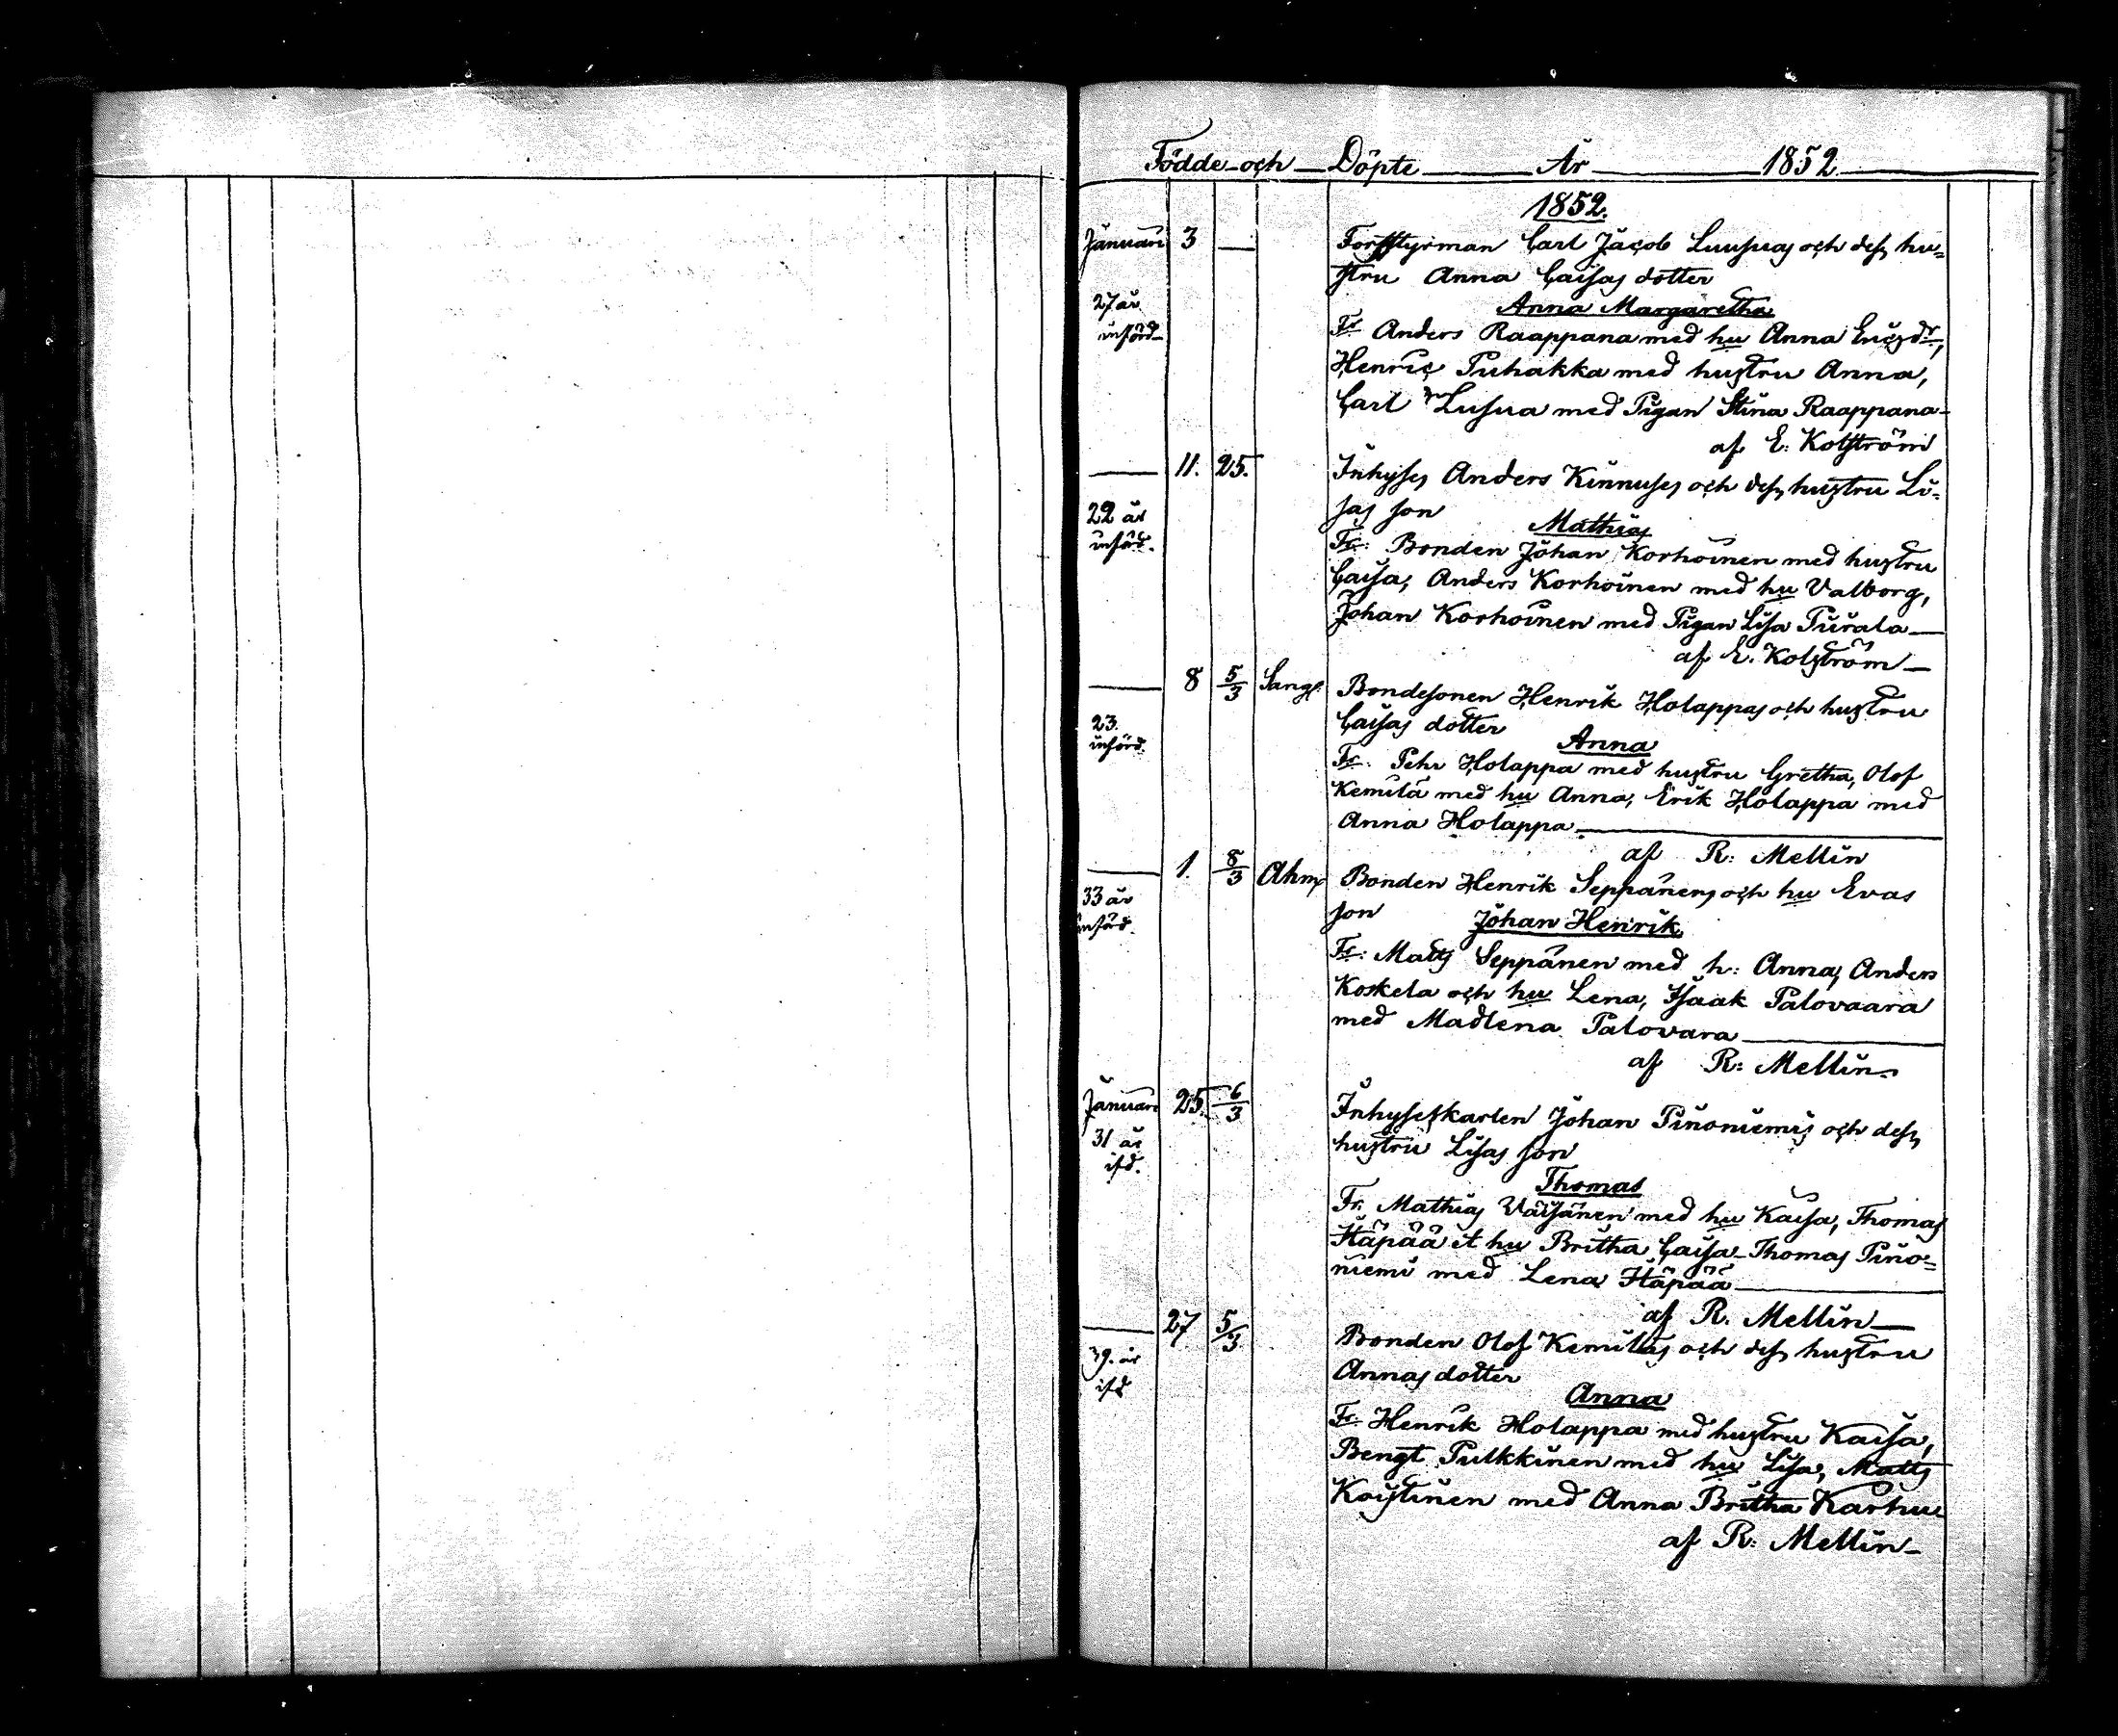 Födde och Döpte År 1852
1852.
Januari 3 — Forsstyrman Carl Jacob Luusuas och dess hu-
stru Anna Caisas dotter
27 år Anna Margaretha
införd Fr Anders Raappana med hu Anna Ericsdr,
Henric Puhakka med hustru Anna,
Carl Lusua med Pigan Stina Raappana
af E. Kolström
— 11. 25. Inhyses Anders Kinnuses och dess hustru Li-
sas son
22 år Mathias
införd. Fr: Bonden Johan Korhoinen med hustru
Caisa, Anders Korhoinen med hu Valborg,
Johan Korhoinen med Pigan Lisa Piirala
af E. Kolström
— 8 5/3 Sangl: Bondesonen Henrik Holappas och hustru
Caisas dotter
23. Anna
införd. Fr: Pehr Holappa med hustru Gretha, Olof
Kemilä med hu Anna, Erik Holappa med
Anna Holappa
af R: Mellin
— 1. 8/3 Ahm Bonden Henrik Seppänens och hu Evas
33 år son Johan Henrik
införd. Fr: Matts Seppänen med h: Anna, Anders
Koskela och hu Lena, Isaak Palovaara
med Madlena Palovara
af R: Mellin
Januari 25. 6/3 Inhyseskarlen Johan Pinoniemis och dess
31 år hustru Lisas son
ifd. Thomas
Fr. Mathias Väisänen med hu Kaisa, Thomas
Häpää et hu Britha Caisa Thomas Pino-
niemi med Lena Häpää
af R. Mellin
— 27 5/3 Bonden Olof Kemiläs och dess hustru
39. år Annas dotter
ifd Anna
Fr Henrik Holappa med hustru Kaisa,
Bengt Pulkkinen med hu Lisa, Matts
Koistinen med Anna Britha Karhu
af R: Mellin